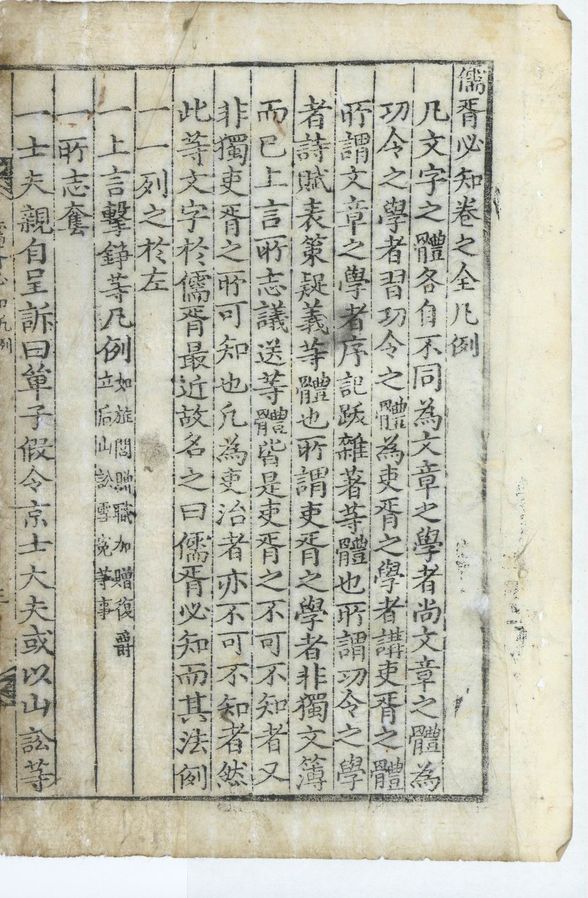 儒胥必知卷之全凡例
凡文字之體各自不同為文章之學者尚文章之體為
功令之學者習功令之體為吏胥之學者講吏胥之體
所謂文章之學者序記跋雜著等體也所謂功令之學
者詩賦表策疑義等體也所謂吏胥之學者非獨文簿
而已上言所志議送等體皆是吏胥之不可不知者又
非獨吏胥之所可知也凡為吏治者亦不可不知者然
此等文字於儒胥最近故名之曰儒胥必知而其法例
一一列之於左
一上言擊錚等凡例如旌閭贈職加贈復爵
立后山訟雪寃等事
一所志套
一士夫親自呈訴曰單子假令京士大夫或以山訟等